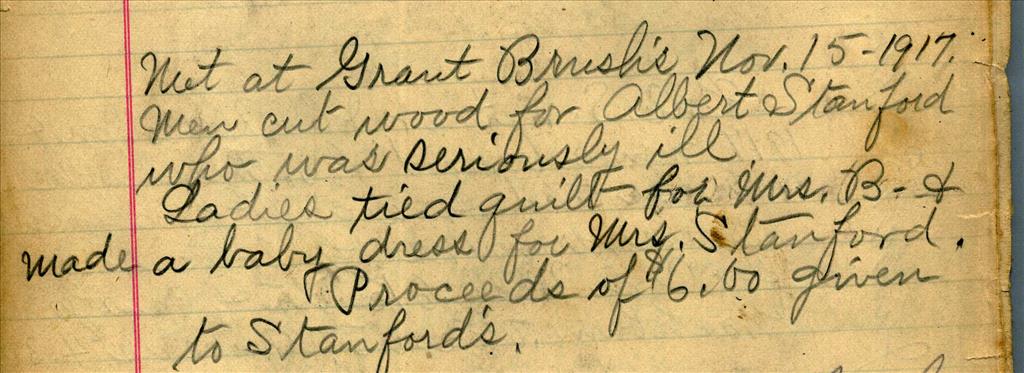 Met at Grant Brush's Nov. 15-1917.
Men cut wood for Albert Stanford
who was seriously ill.
Ladies tied quilt for Mrs. B- &
made a baby dress for Mrs. Stanford.
Proceeds of $6.00 given
to Stanford's.